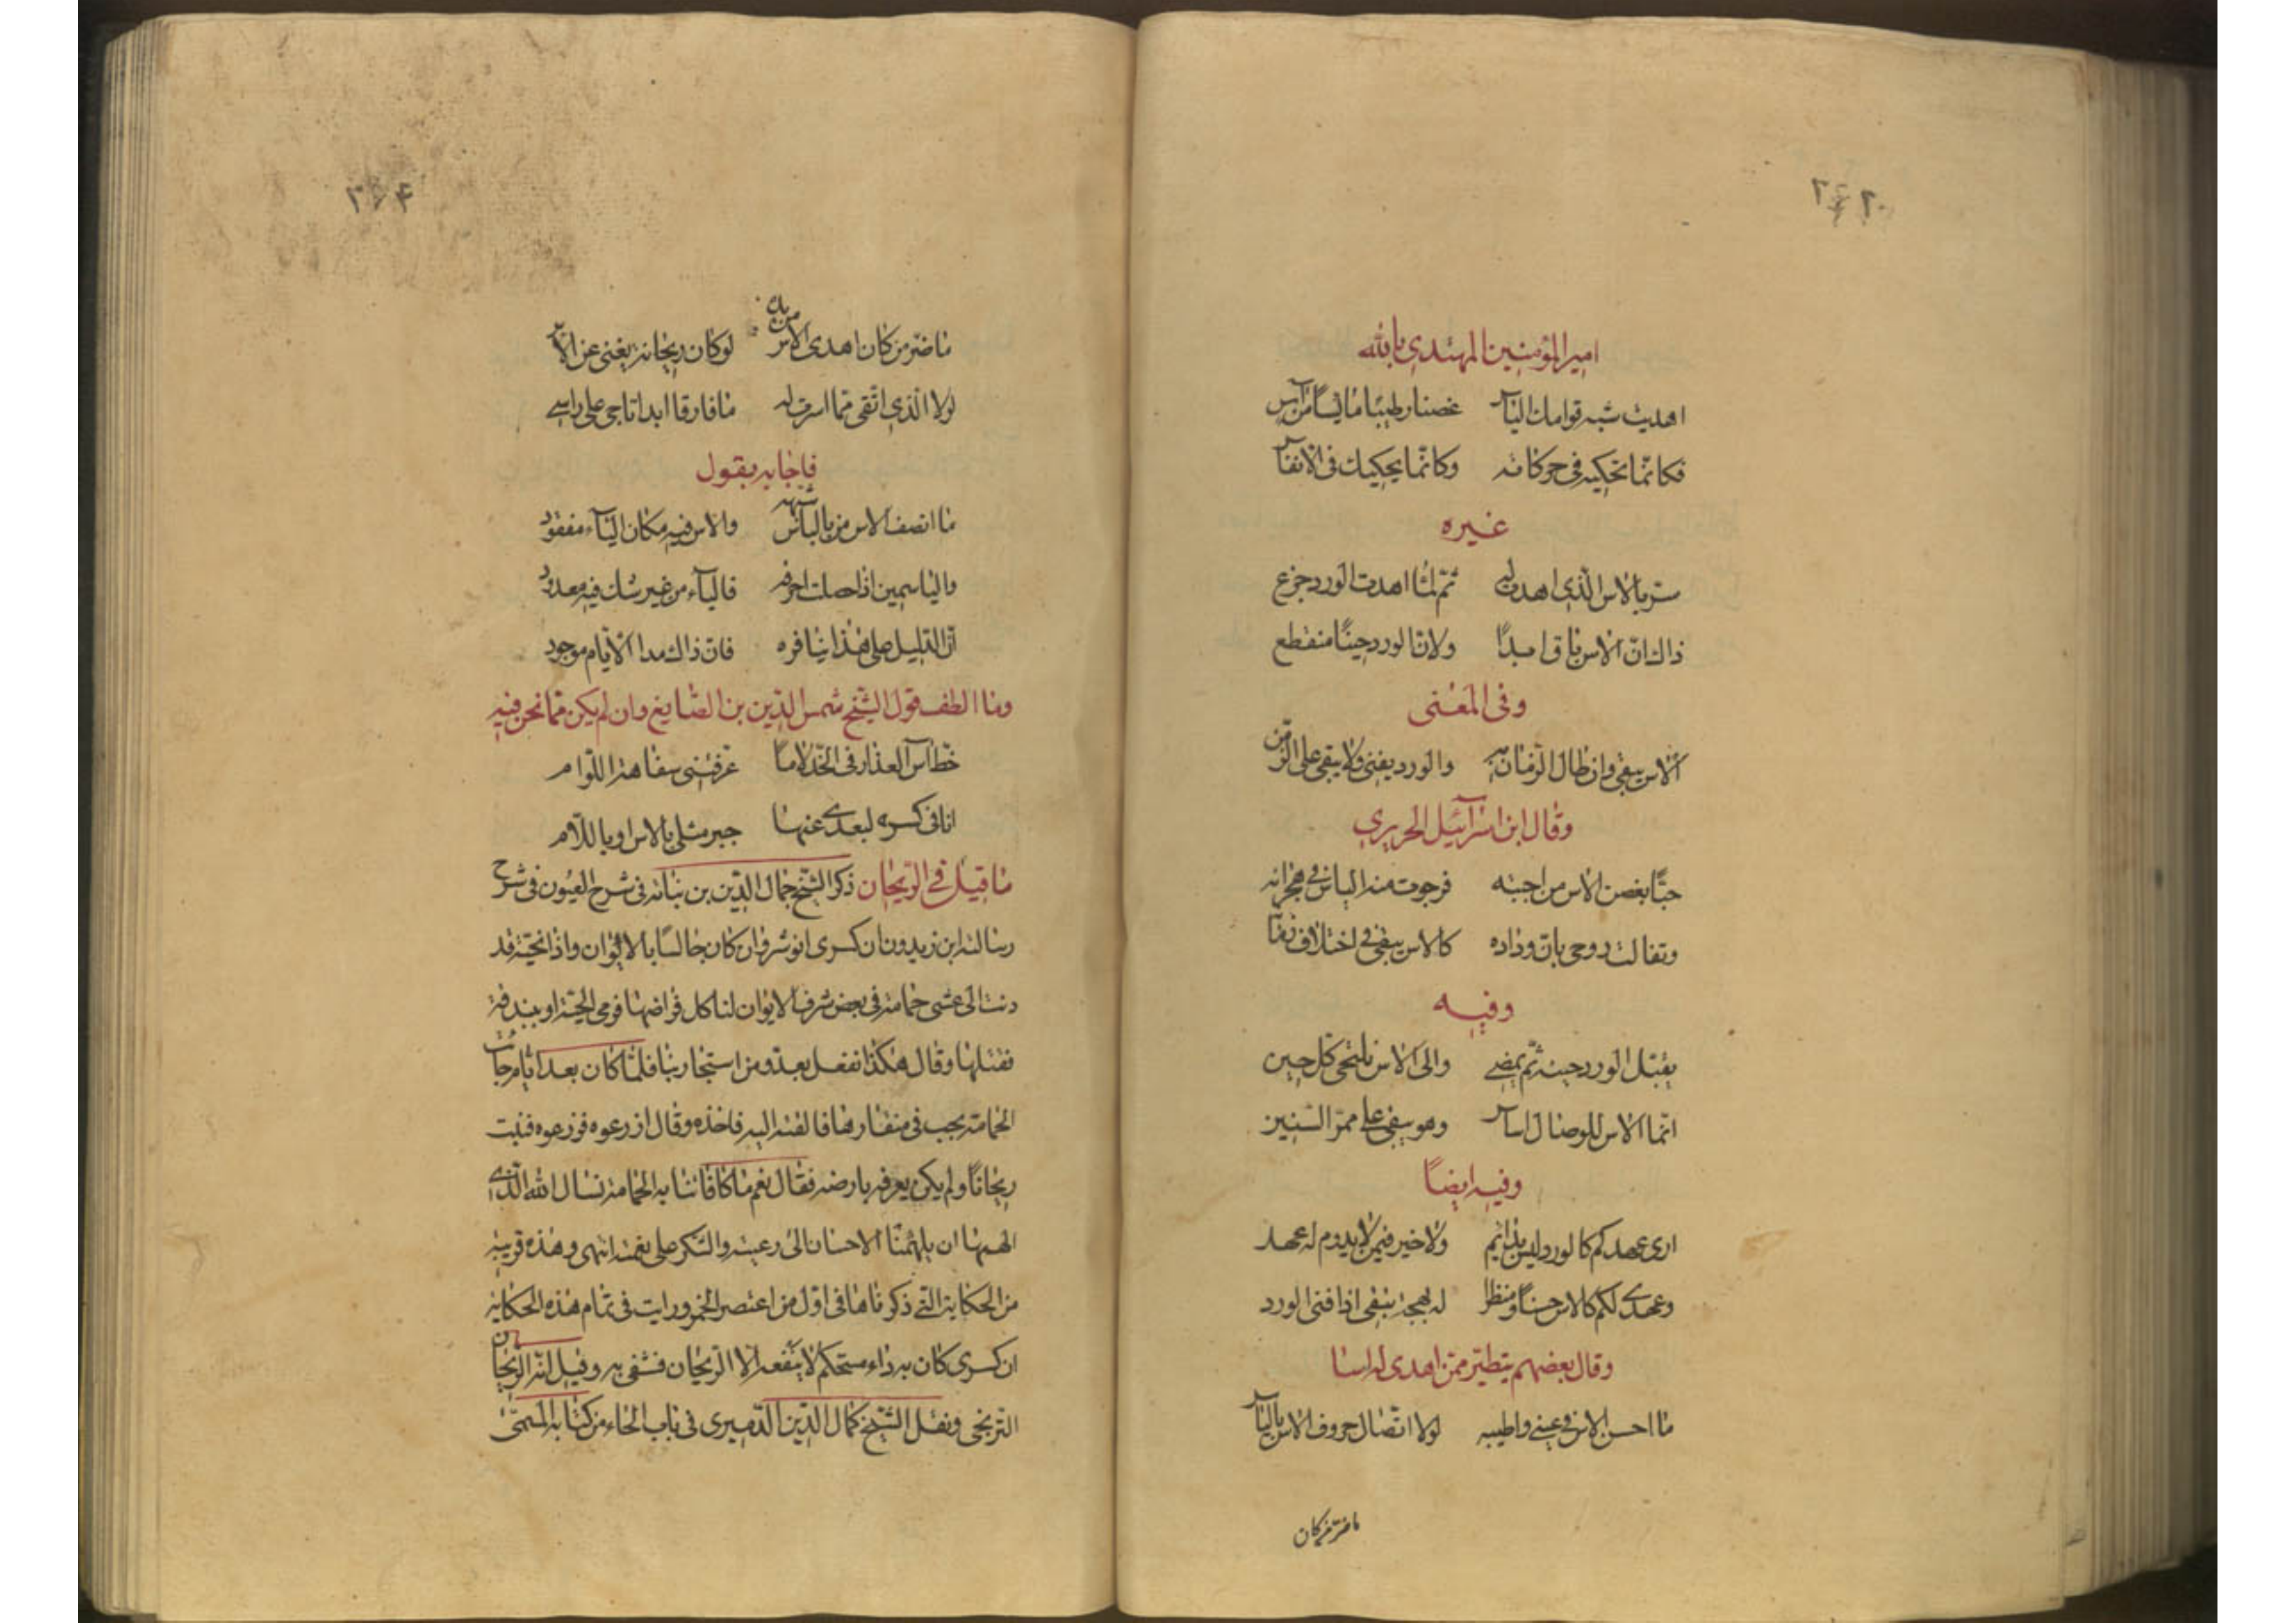 امير المؤمنين المهتدى بالله
اهديت شبه قوامك الياس غصنا رطيبا مائسا من آس
فكانما تحكيه فى حركاته وكانما يحكيك فى الانفاس
غيره
ستر بالاس الذى اهدى له ثم لما اهدت الورد جزع
ذاك ان الاس باق ابدا ولان الورد حينا منقطع
وفى المعنى
الاس يبقى وان طال الزمان به والورد يفنى ولا يبقى على الزمن
وقال ابن اسرآئيل الحريرى
حبّا بغصن الاس من احبته فرجوت منه الياس فى هجرانه
وتفالت روحى بان وداده كالاس يبقى فى اختلاف
وفيه
يقبل الورد حينه ثم يمضى والى الاس نلتجى كل حين
انما الاس للوصال اساس وهو يبقى على ممر السنين
وفيه ايضاً
ارى عهدكم كالورد ليس بدائم ولا خير فيمن لا يدوم له عهد
وعهدى لكم كالاس حسنا ومنظرا له بهجة تبقى اذا فنى الورد
وقال بعضهم يتطير ممن اهدى له اسا
ما احسن الاس فى عينى واطيبه لولا اتصال حروف الاس بالياس
ما ضر من كان
ما ضر من كان اهدى الاس من يده لو كان ريحانه يغنى عن الاس
لولا الذى اتقى مما اسر له ما فارقا ابدا تاجى على راسى
فاجابه يقول
ما انصف الاس من بالياس شبهه والاس فيه مكان اليآء مفقود
والياسمين اذا حصلت احرفه فاليآء من غير شك فيه معدود
ان الدليل على هذا تنافره فان ذاك مدا الايام موجود
وما الطف قول الشيخ شمس الدين بن الصايغ وان لم يكن مما نحن فيه
خط آس العذار فى الخد لاما عرفتنى سفاهة اللوام
انا فى كسره لبعدى عنها جبر مثلى بالاس او باللام
ما قيل فى الريحان ذكر الشيخ جمال الدين بن نباته فى شرح العيون فى شرح
رسالة ابن زيدون ان كسرى انوشروان كان جالسا بالايوان واذا بحية قد
دنت الى عش حمامة فى بعض شرف الايوان لتاكل فراخها فرمى الحية او ببندقة
فقتلها وقال هكذا نفعل بعدو من استجار بنا فلما كان بعد ايام جآت
الحمامة بحب فى منقارها فالقته اليه فاخذه وقال ازرعوه فزرعوه فنبت
ريحانا ولم يكن يعرفه بارضه فقال نعم ما كافاتنا به الحمامة نسال الله الذى
الهمها ان يلهمنا الاحسان الى رعيته والشكر على نعمته انتهى وهذه قريبة
من الحكاية التى ذكرناها فى اول من اعتصر الخمر ورايت فى تمام هذه الحكاية
ان كسرى كان به داء مستحكم لا ينفعه الا الريحان فشفى به وقيل انه الريحان
الترنجى ونقل الشيخ كمال الدين الدميرى فى باب الحاء من كتابه المسمى